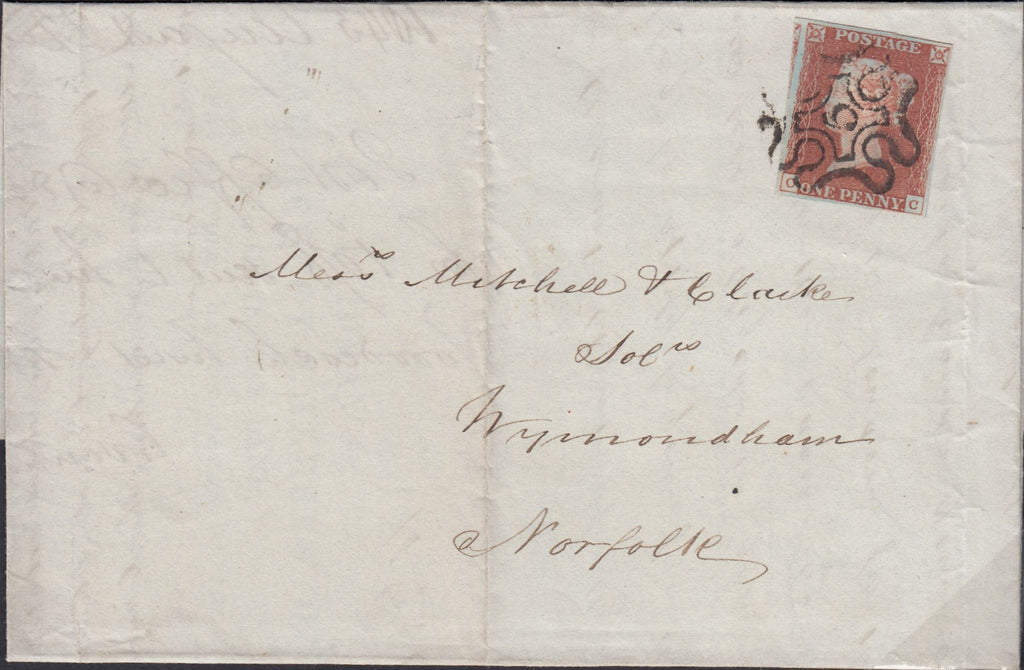 POSTAGE
5
ONE PENNY C
Mess^rs Mitchell & Clarke
Sol^rs
Wymondham
Norfolk